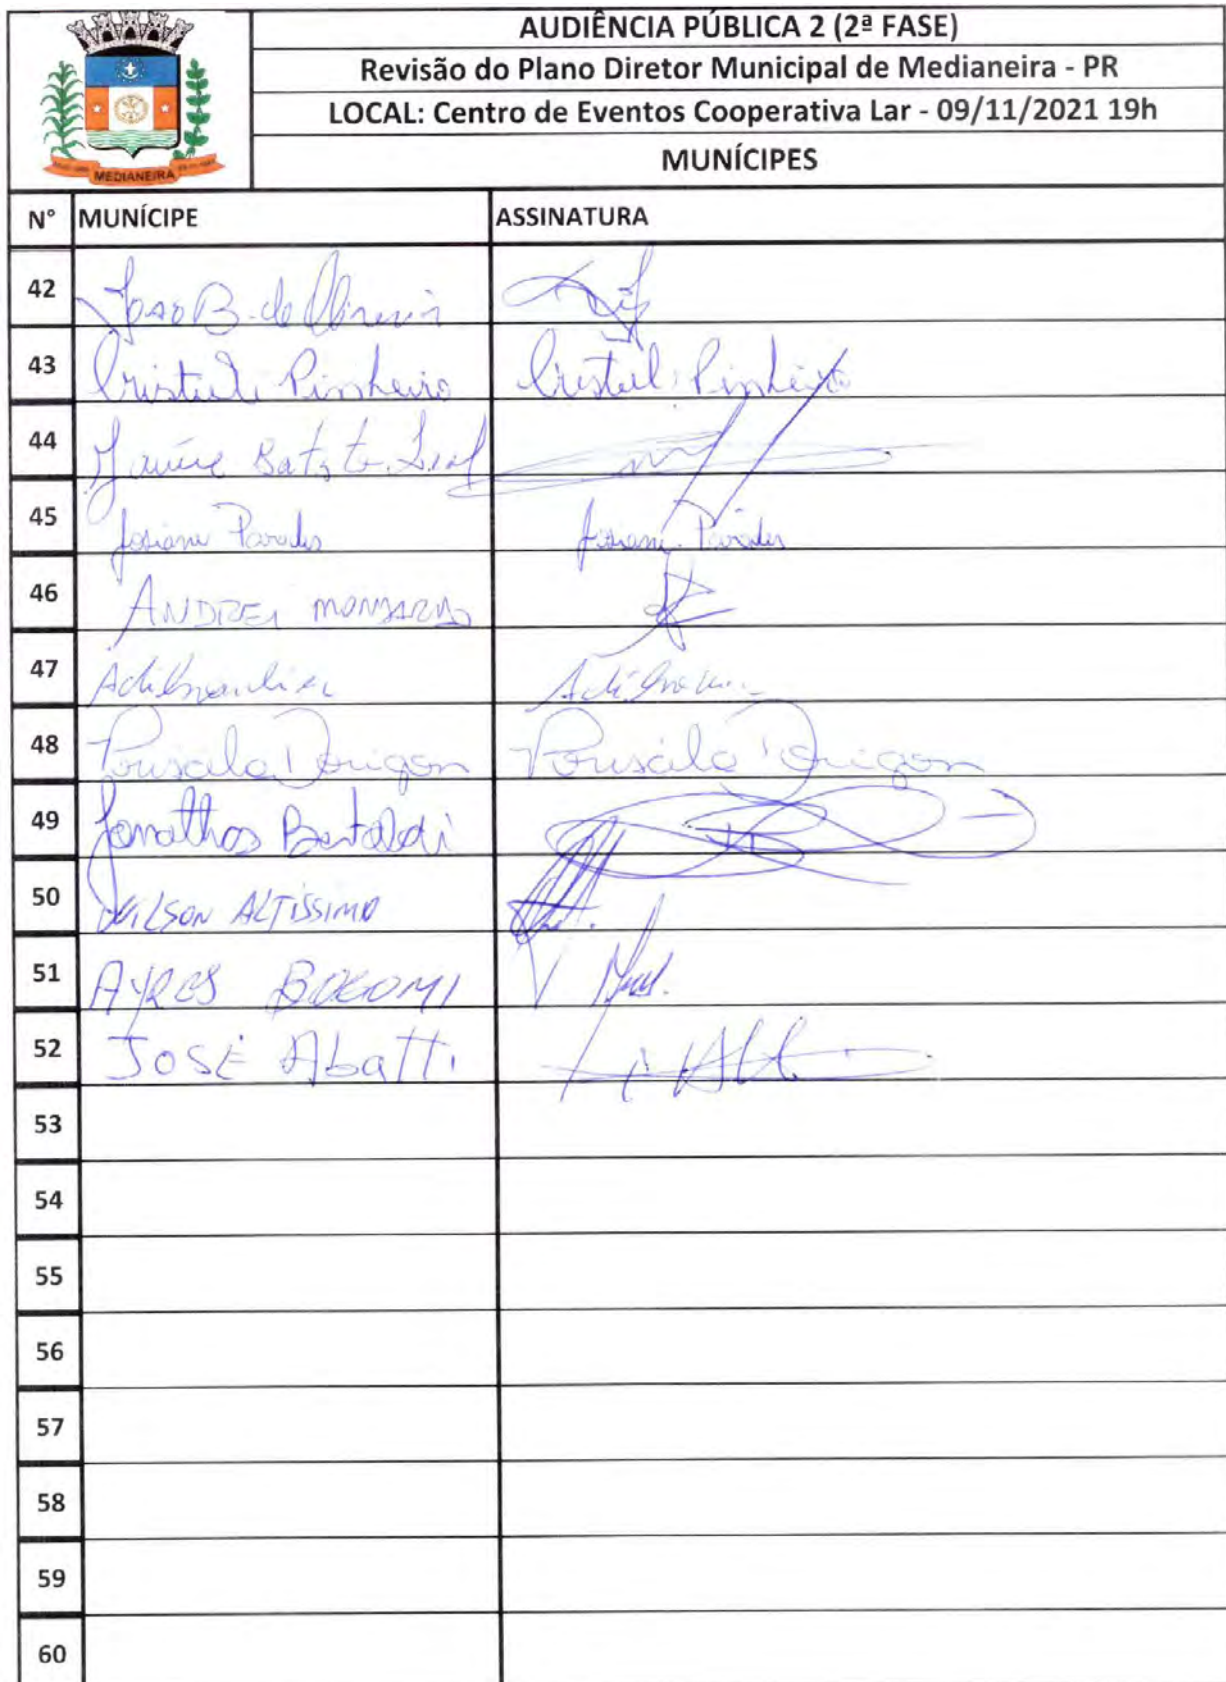 AUDIÊNCIA PÚBLICA 2 (2ª FASE)
Revisão do Plano Diretor Municipal de Medianeira - PR
LOCAL: Centro de Eventos Cooperativa Lar - 09/11/2021 19h
MUNÍCIPES
MEDIANEIRA
N° MUNÍCIPE ASSINATURA
42 João B. de Oliveira
43 Pinheiro Pinheiro
44 Batista Leal
45 Josiane Paredes Josiane Paredes
46 ANDREI
47
48 Priscila Dorigon Priscila Dorigon
49 Jonathas Bertoldi
50 WILSON ALTÍSSIMO
51 AYRES BOGONI
52 JOSÉ Abatti
53
54
55
56
57
58
59
60